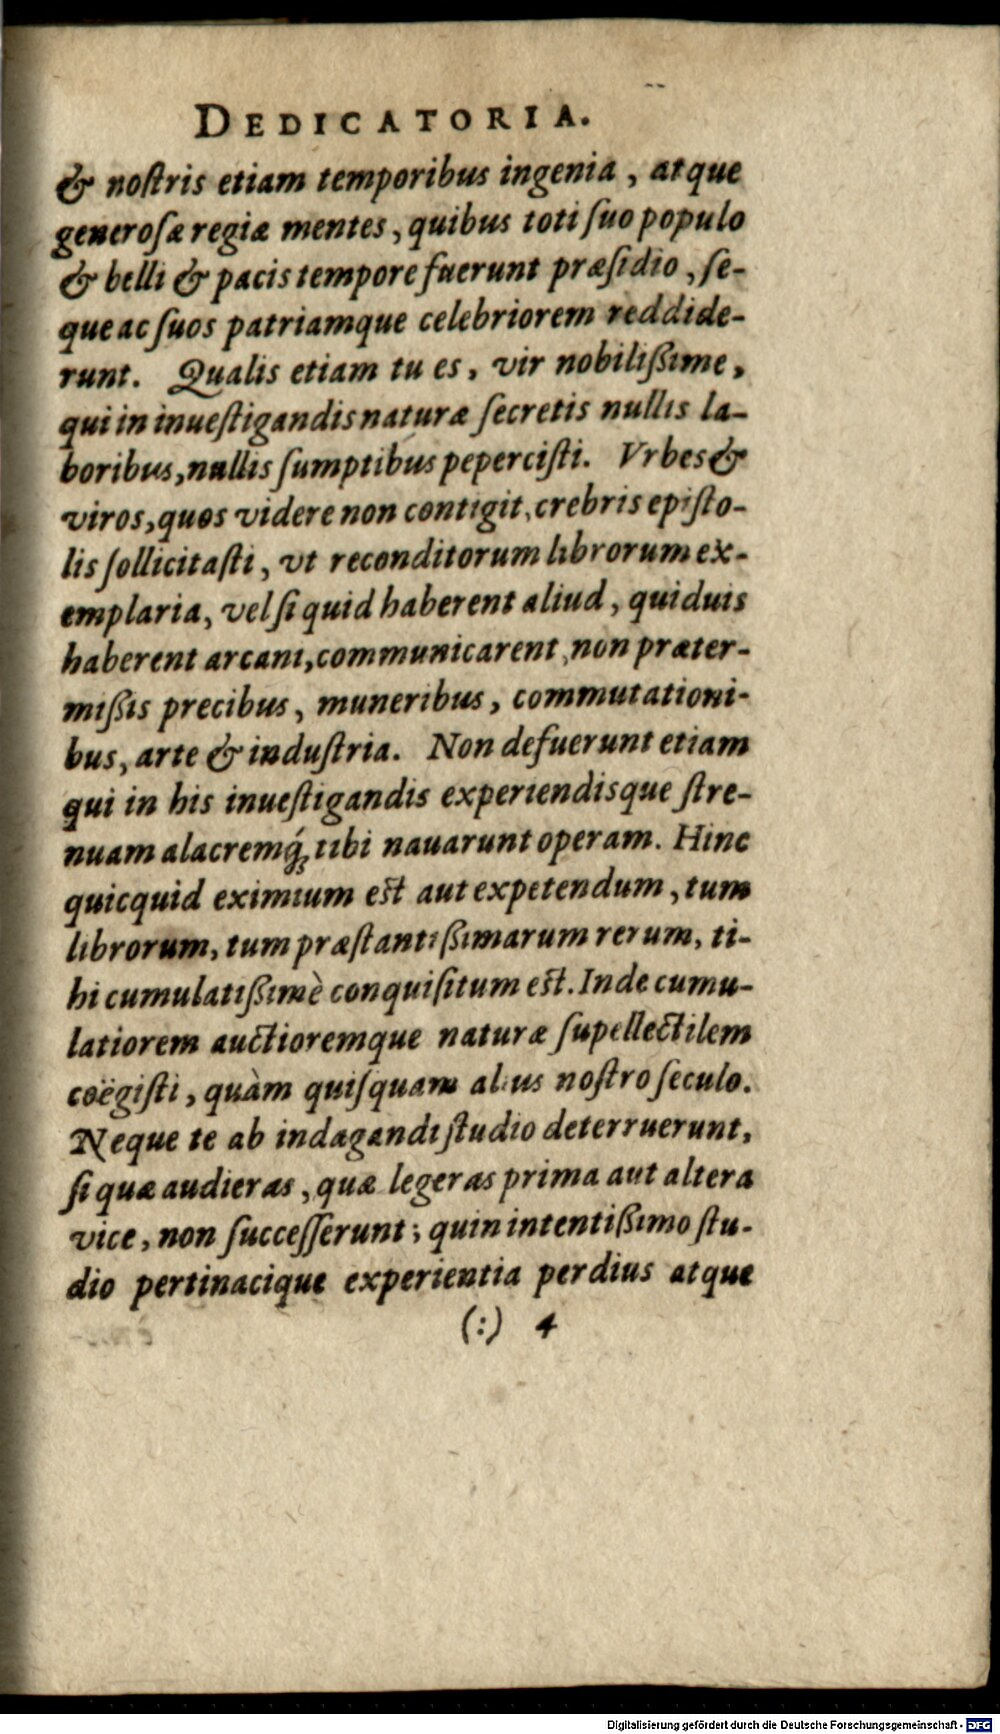 DEDICATORIA.
& noſtris etiam temporibus ingenia, atque
generoſæ regiæ mentes, quibus toti ſuo populo
& belli & pacis tempore fuerunt præſidio, ſe-
que ac ſuos patriamque celebriorem reddide-
runt. Qualis etiam tu es, vir nobiliſſime,
qui in inueſtigandis naturæ ſecretis nullis la-
boribus, nullis ſumptibus pepercisti. Vrbes &
viros, quos videre non contigit, crebris epiſto-
lis ſollicitaſti, vt reconditorum librorum ex-
emplaria, vel ſi quid haberent aliud, quiduis
haberent arcani, communicarent, non præter-
miſſis precibus, muneribus, commutationi-
bus, arte & induſtria. Non defuerunt etiam
qui in his inueſtigandis experiendisque ſtre-
nuam alacremq́; tibi nauarunt operam. Hinc
quicquid eximium eſt aut expetendum, tum
librorum, tum præſtantiſſimarum rerum, ti-
bi cumulatiſſimè conquiſitum eſt. Inde cumu-
latiorem auctioremque naturæ ſupellectilem
coëgiſti, quàm quiſquam alius noſtro ſeculo.
Neque te ab indagandi ſtudio deterruerunt,
ſi quæ audieras, quæ legeras prima aut altera
vice, non ſucceſſerunt; quin intentiſſimo ſtu-
dio pertinacique experientia perdius atque
(:) 4
Digitalisierung gefördert durch die Deutsche Forschungsgemeinschaft - DFG